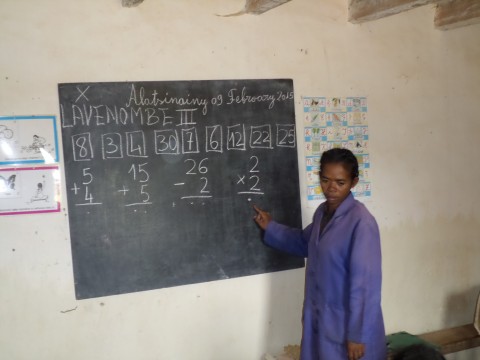 X
Alatsinainy 09 February 2015
LAVENOMBE III
8 3 4 30 7 6 12 22 25
5 15 26 2
+ 4 + 5 - 2 × 2